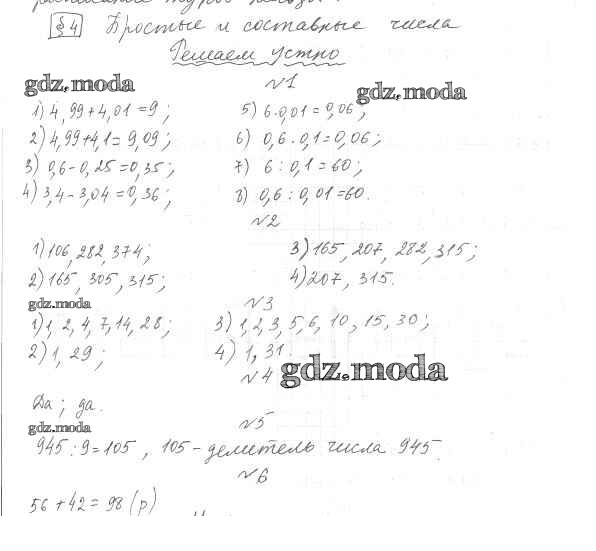 §4 Простые и составные числа
Решаем устно
gdz.moda
№1
gdz.moda
1) 4,99+4,01=9;
5) 6·0,01=0,06;
2) 4,99+4,1=9,09;
6) 0,6·0,1=0,06;
3) 0,6-0,25=0,35;
7) 6:0,1=60;
4) 3,4-3,04=0,36;
8) 0,6:0,01=60.
№2
1) 106, 282, 374;
3) 165, 207, 282, 315;
2) 165, 305, 315;
4) 207, 315.
gdz.moda
№3
1) 1, 2, 4, 7, 14, 28;
3) 1, 2, 3, 5, 6, 10, 15, 30;
2) 1, 29;
4) 1, 31.
№4
gdz.moda
Да; да.
gdz.moda
№5
945:9=105, 105-делитель числа 945.
№6
56+42=98(р)